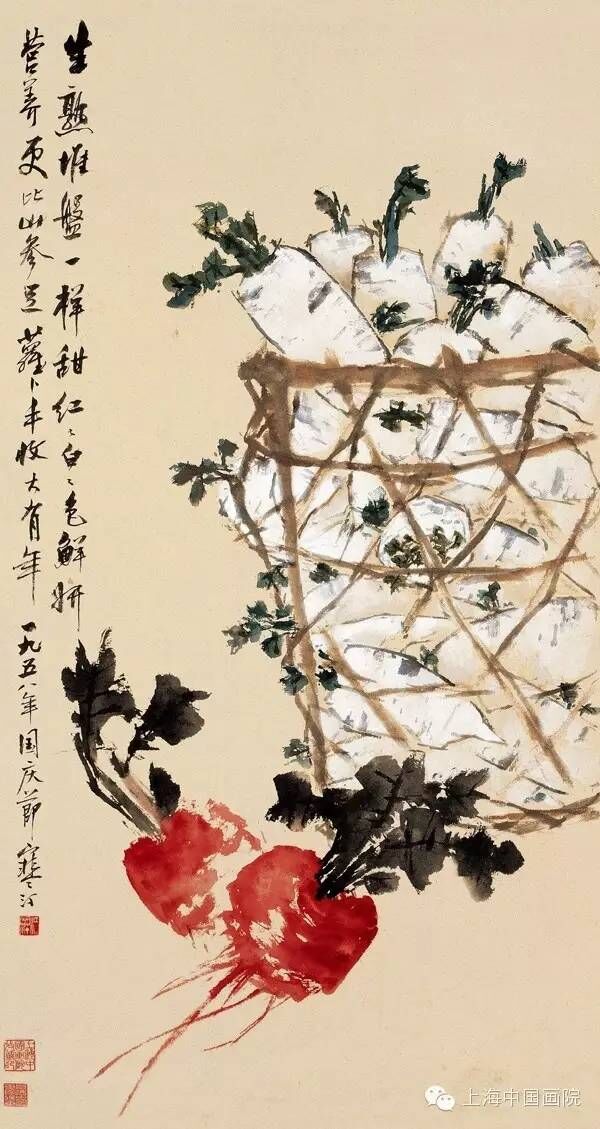 生熟堆盤一样甜红〻白〻色鮮妍
营养更比山参足蘿卜丰收大有年 一九五八年国庆節 寒汀
上海中国画院